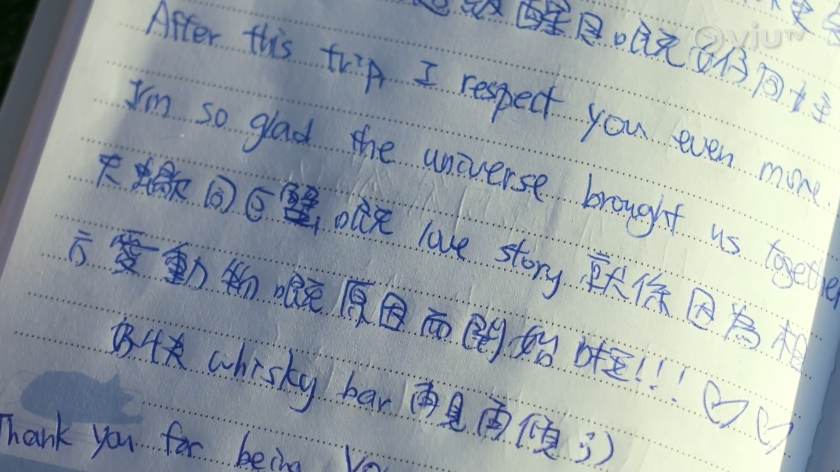 超級醒目嘅
ViuTV
After this trip I respect you even more.
I'm so glad the universe brought us together
天蠍同巨蟹嘅 love story 就係因為相
方愛動物嘅原因而開始㗎!!! ♡♡
好快 whisky bar 再見再傾 :)
Thank you for being